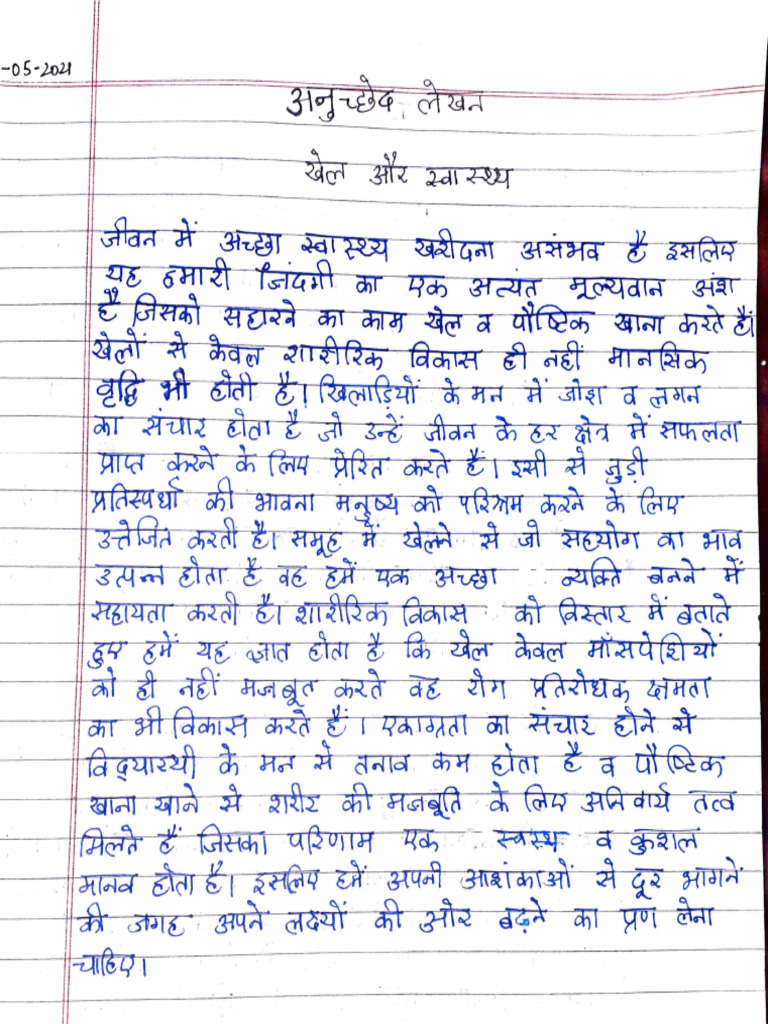 -05-2021
अनुच्छेद लेखन
खेल और स्वास्थ्य
जीवन में अच्छा स्वास्थ्य खरीदना असंभव है इसलिए
यह हमारी जिंदगी का एक अत्यंत मूल्यवान अंश
है जिसको सहारने का काम खेल व पौष्टिक खाना करते हैं।
खेलों से केवल शारीरिक विकास ही नहीं मानसिक
वृद्धि भी होती है। खिलाड़ियों के मन में जोश व लगन
का संचार होता है जो उन्हें जीवन के हर क्षेत्र में सफलता
प्राप्त करने के लिए प्रेरित करते हैं। इसी से जुड़ी
प्रतिस्पर्धा की भावना मनुष्य को परिश्रम करने के लिए
उत्तेजित करती है। समूह में खेलने से जो सहयोग का भाव
उत्पन्न होता है वह हमें एक अच्छा व्यक्ति बनने में
सहायता करती है। शारीरिक विकास को विस्तार में बताते
हुए हमें यह ज्ञात होता है कि खेल केवल माँसपेशियों
को ही नहीं मजबूत करते वह रोग प्रतिरोधक क्षमता
का भी विकास करते हैं। एकाग्रता का संचार होने से
विद्यारथी के मन से तनाव कम होता है व पौष्टिक
खाना खाने से शरीर की मजबूति के लिए अनिवार्य तत्व
मिलते हैं जिसका परिणाम एक स्वस्थ व कुशल
मानव होता है। इसलिए हमें अपनी आशंकाओं से दूर भागने
की जगह अपने लक्ष्यों की ओर बढ़ने का प्रण लेना
चाहिए।